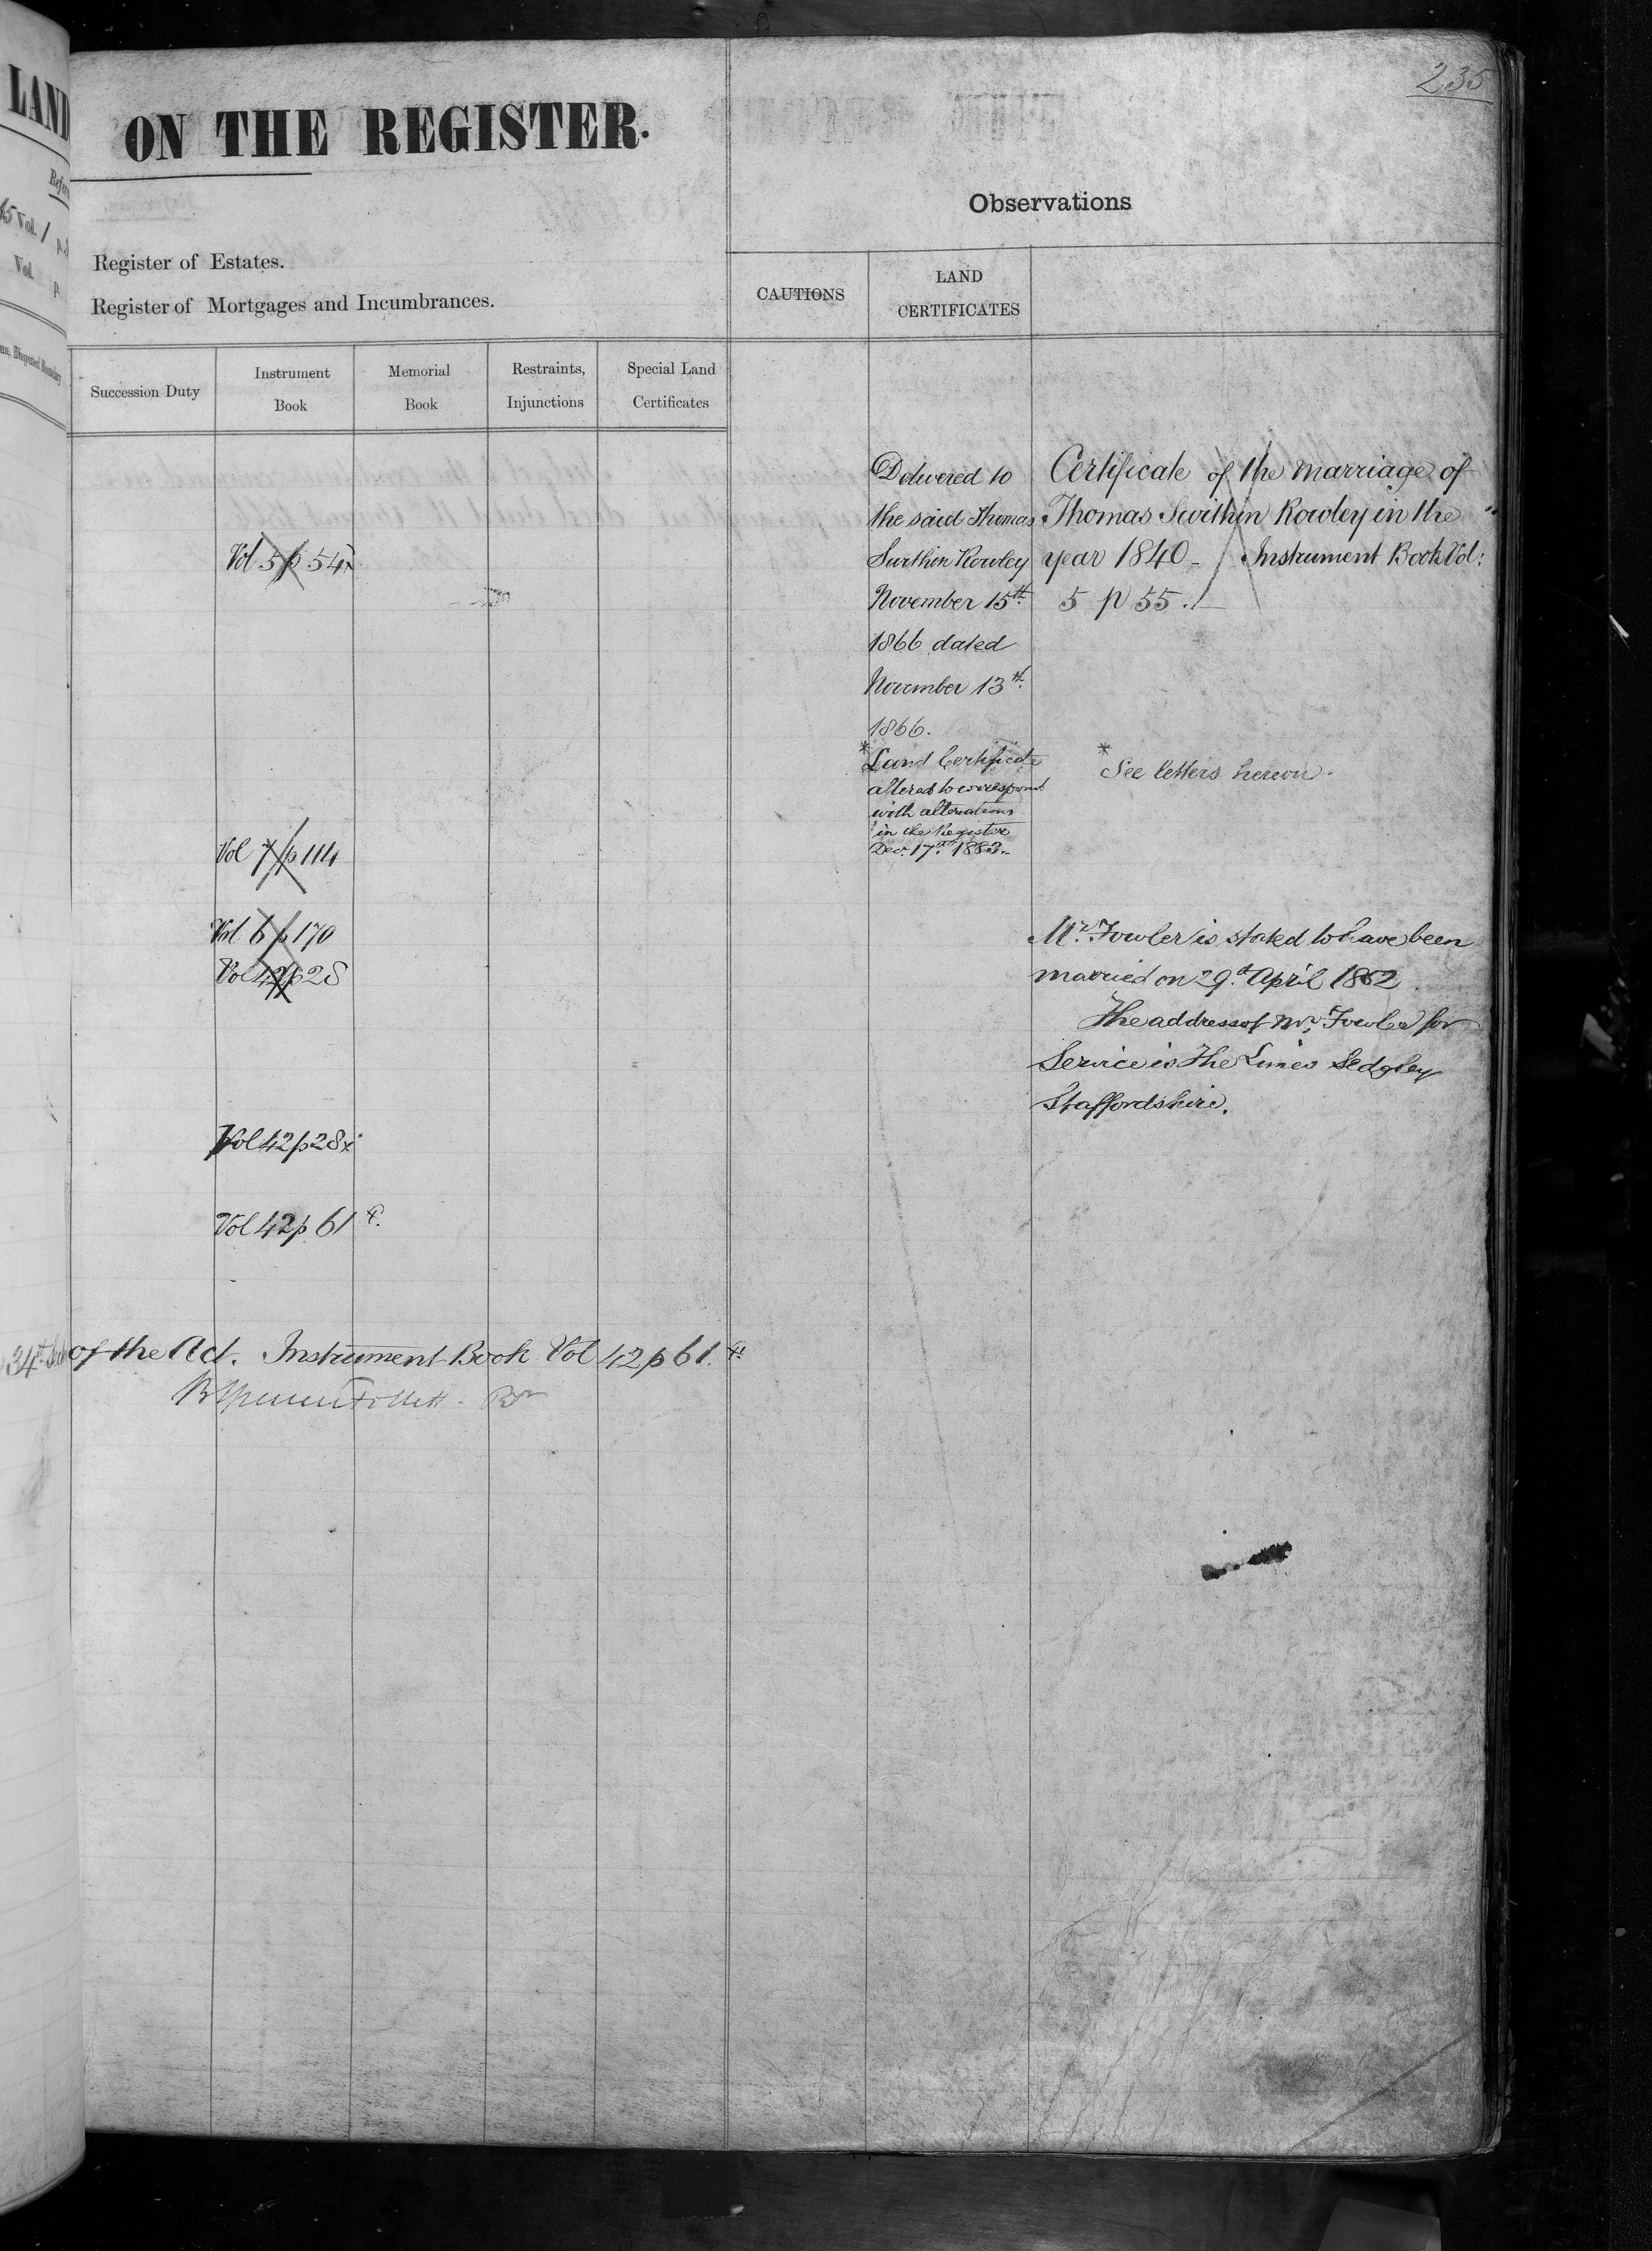 235
LAND
ON THE REGISTER.
Observations
Vol. 1
Vol.
Register of Estates.
Register of Mortgages and Incumbrances.
CAUTIONS
LAND
CERTIFICATES
Succession Duty
Instrument
Book
Memorial
Book
Restraints,
Injunctions
Special Land
Certificates
Vol 5 p 54
Vol 7 p 114
Vol 6 p 170
Vol 42 p 28
Vol 42 p 28
Vol 42 p 61
of the Act. Instrument Book Vol 42 p 61.
Delivered to
the said Thomas
Swithin Rowley
November 15th
1866 dated
November 13th
1866.
*Land Certificate
altered to correspond
with alterations
in the Register
Dec. 17th 1883
Certificate of the marriage of
Thomas Swithin Rowley in the
year 1840 - Instrument Book Vol:
5 p 55.
*See letters hereon.
Mr. Fowler is stated to have been
married on 29th April 1862
The address of Mr. Fowler for
Service is The Limes Sedgley
Staffordshire.